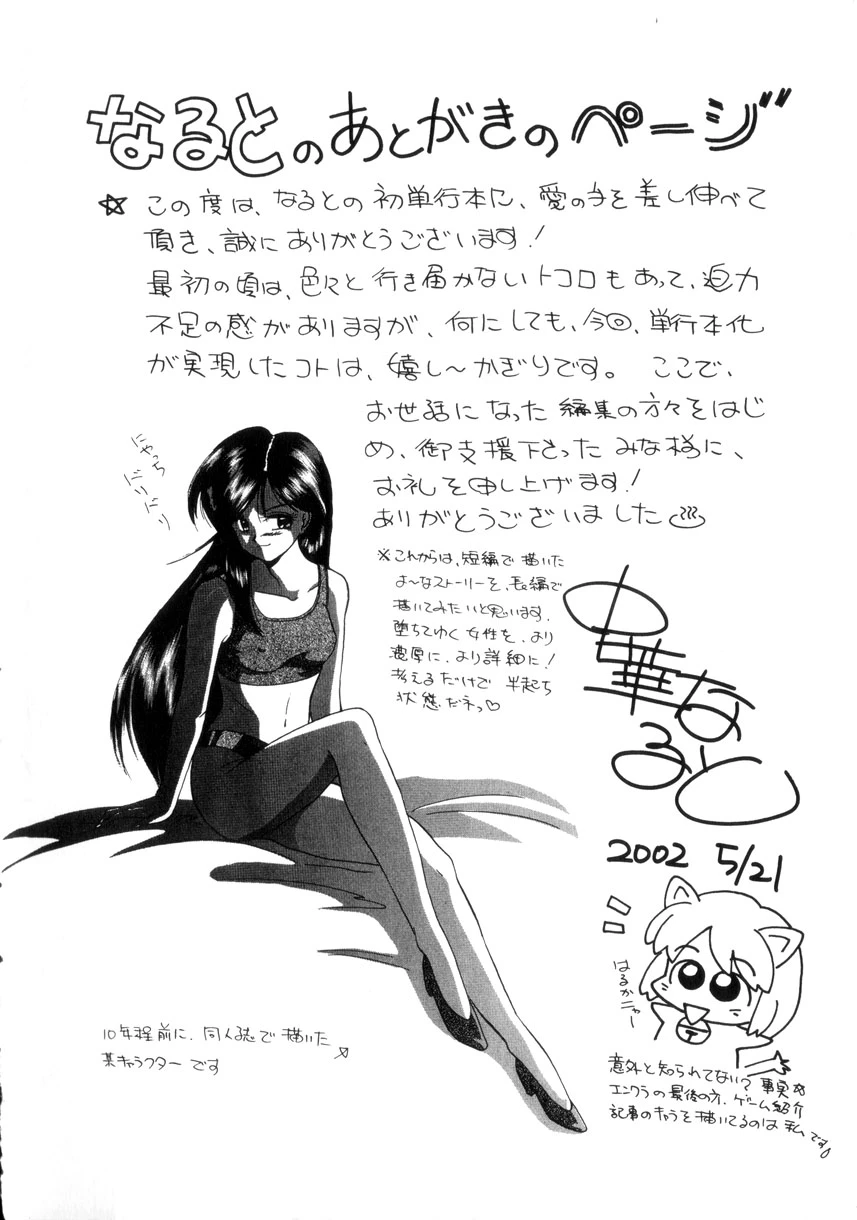 なるとのあとがきのページ
☆ この度は、なるとの初単行本に、愛の手を差し伸べて
頂き、誠にありがとうございます！
最初の頃は、色々と行き届かないトコロもあって、迫力
不足の感がありますが、何にしても、今回、単行本化
が実現したコトは、嬉し〜かぎりです。 ここで、
お世話になった編集の方々をはじ
め、御支援下さったみな様に、
お礼を申し上げます！
ありがとうございました
にゃっち
どりどり
※これからは、短編で描いた
よ〜なストーリーを、長編で
描いてみたいと思います。
堕ちてゆく女性を、より
濃厚に、より詳細に！
考えるだけで 半起ち
状態だネっ♡
中華なると
2002 5/21
はるかニャー
10年程前に、同人誌で描いた
某キャラクターです
意外と知られてない？事実☆
エンクラの最後の方、ゲーム紹介
記事のキャラを描いてるのは私です